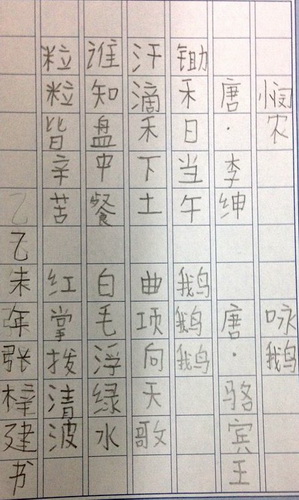 悯农
唐·李绅
锄禾日当午
汗滴禾下土
谁知盘中餐
粒粒皆辛苦
咏鹅
唐·骆宾王
鹅鹅鹅
曲项向天歌
白毛浮绿水
红掌拨清波
乙未年张梓建书